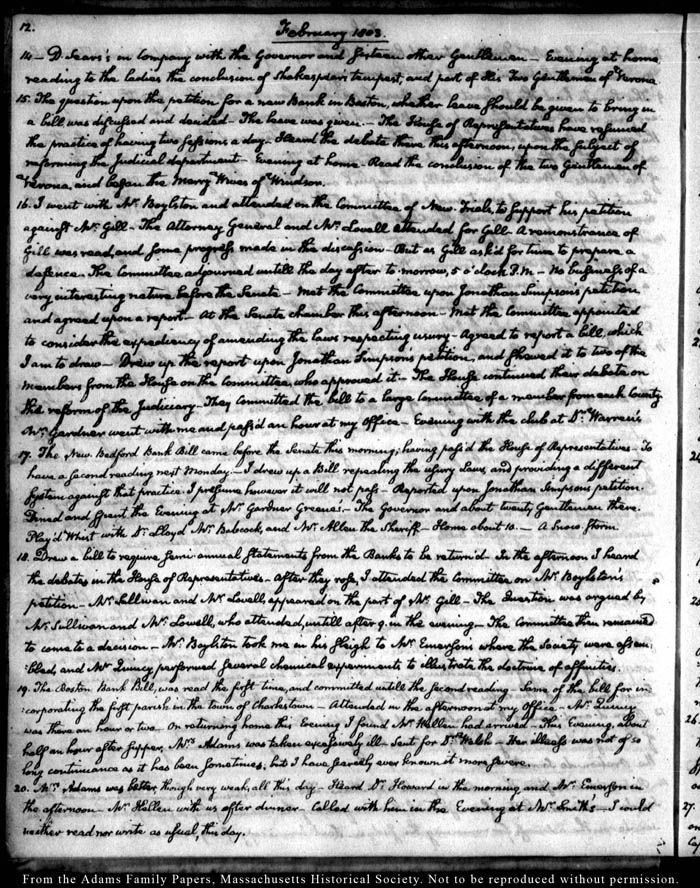 12.
February 1803.
14 — D. Sears's in company with the Governor and sixteen other Gentlemen — Evening at home
reading to the ladies the conclusion of Shakespear's tempest, and part of His Two Gentlemen of Verona
15. The question upon the petition for a new Bank in Boston, whether leave should be given to bring in
a bill was discussed and decided — The leave was given — The House of Representatives have resumed
the practice of having two sessions a day — Heard the debate there this afternoon, upon the subject of
reforming the Judicial department — Evening at home — Read the conclusion of the two Gentlemen of
Verona, and began the Merry Wives of Windsor.
16. I went with Mr. Boylston and attended on the Committee of New-Trials, to support his petition
against Mr. Gill — The Attorney General and Mr. Lowell attended for Gill — A remonstrance of
Gill was read, and some progress made in the discussion — But as Gill ask'd for time to prepare a
defence — The Committee adjourned untill the day after to-morrow, 5 o'clock P.M. — No business of a
very interesting nature before the Senate — Met the Committee upon Jonathan Simpson's petition
and agreed upon a report — At the Senate chamber this afternoon — Met the Committee appointed
to consider the expediency of amending the laws respecting usury — Agreed to report a bill, which
I am to draw — Drew up the report upon Jonathan Simpson's petition, and shewed it to two of the
members from the House on the Committee, who approved it — The House continued their debate on
this reform of the Judiciary — They committed the bill to a large Committee of a member from each County
Mr. Gardner went with me and pass'd an hour at my Office — Evening with the club at Dr. Warren's
17. The New Bedford Bank Bill came before the Senate this morning; having pass'd the House of Representatives — To
have a second reading next Monday — I drew up a Bill repealing the usury laws, and providing a different
system against that practice. I presume however it will not pass — Reported upon Jonathan Simpson's petition.
Dined and spent the Evening at Mr. Gardner Greene's — The Governor and about twenty Gentlemen there.
Play'd Whist with Dr. Lloyd Mr. Babcock, and Mr. Allen the Sheriff — Home about 10 — A Snow storm
18. Drew a bill to require semi-annual statements from the Banks to be return'd. In the afternoon I heard
the debates in the House of Representatives — After they rose, I attended the Committee on Mr. Boylston's
petition — Mr. Sullivan and Mr. Lowell, appeared on the part of Mr. Gill — The Question was argued by
Mr. Sullivan and Mr. Lowell, who attended, untill after 9. in the evening — The Committee then remained
to come to a decision — Mr. Boylston took me in his sleigh to Mr. Emerson's where the Society were assem-
:bled, and Mr. Quincy performed several chemical experiments to illustrate the doctrine of affinities.
19. The Boston Bank Bill, was read the first time, and committed untill the second reading — Same of the bill for in-
:corporating the first parish in the town of Charlestown — Attended in the afternoon at my Office — Mr. Quincy
was there an hour or two — On returning home this Evening I found Mr. Hellen had arrived — This Evening, about
half an hour after supper, Mrs. Adams was taken excessively ill — Sent for Dr. Welsh — Her illness was not of so
long continuance as it has been sometimes, but I have scarcely ever known it more severe.
20. Mrs. Adams was better, though very weak, all this day — Heard Dr. Howard in the morning and Mr. Emerson in
the afternoon — Mr. Hellen with us after dinner — Called with him in the Evening at Mr. Smith's — I could
neither read nor write as usual, this day.
From the Adams Family Papers, Massachusetts Historical Society. Not to be reproduced without permission.